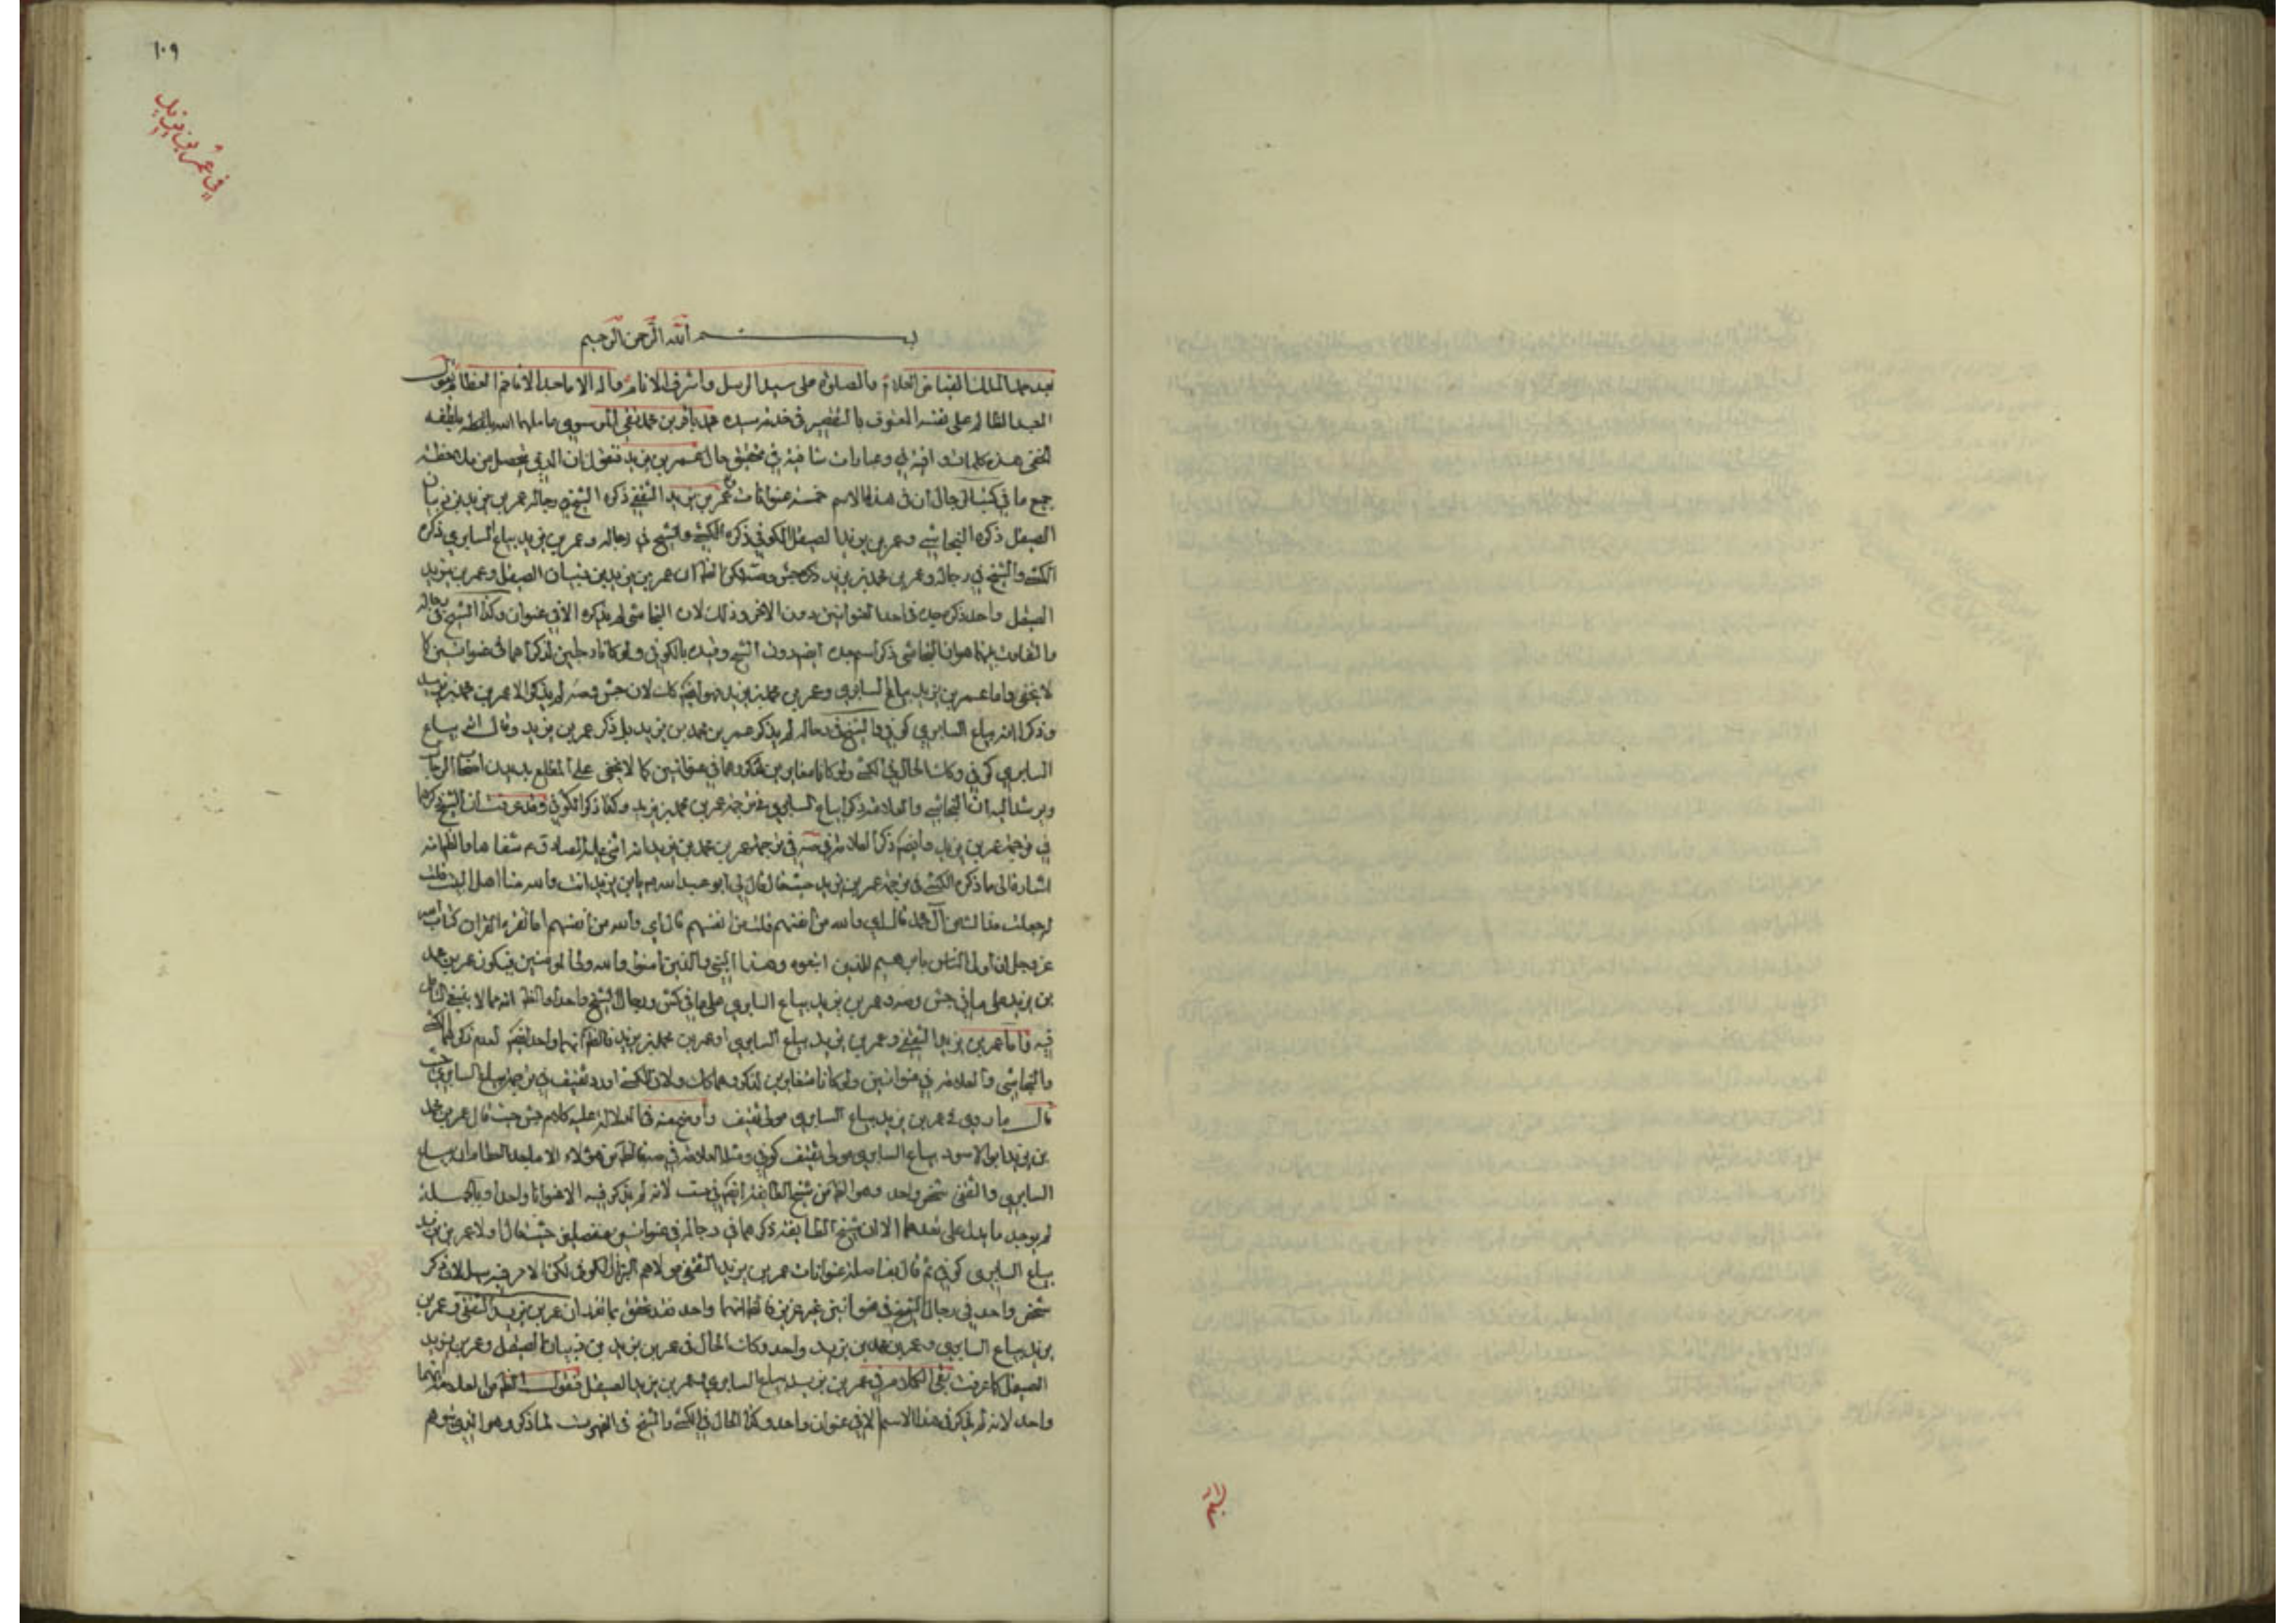 ١٠٩
في عمر بن يزيد
بسم الله الرحمن الرحيم
بعد حمد الملك الفياض العلام والصلوة على سيد الرسل واشرف الانام وآله الاماجد الافاخم العظام يقول
العبد الظالم على نفسه المعترف بالتقصير في خدمة سيده محمد باقر بن محمد نقي الموسوي عاملهما الله بلطفه
هذه كلمات وافية وعبارات شافية في تحقيق حال عمر بن يزيد فنقول ان الذي تحصل من ملاحظة
جميع ما في كتب الرجال ان في هذا الاسم خمسة عنوانات عمر بن يزيد الثقفي ذكره الشيخ في رجاله عمر بن يزيد بن ذبيان
الصيقل ذكره النجاشي وعمر بن يزيد الصيقل الكوفي ذكره الكشي والشيخ في رجاله وعمر بن يزيد بياع السابري ذكره
الكشي والشيخ في رجاله وعمر بن محمد بن يزيد ذكره جش وصه لكن الظ ان عمر بن يزيد بن ذبيان الصيقل وعمر بن يزيد
الصيقل واحد ذكر جده في احد العنوانين دون الاخر وذلك لان النجاشي لم يذكره الا في عنوان وكذا الشيخ في رجاله
والتفاوت بينهما هو ان النجاشي ذكر اسم جده ايضا دون الشيخ وقيده بالكوفي ولو كانا رجلين لذكراهما في عنوانين كما
لا يخفى واما عمر بن يزيد بياع السابري وعمر بن محمد بن يزيد فهو ايضا كك لان جش وصه لم يذكرا الا عمر بن محمد بن يزيد
وذكرا انه بياع السابري كوفي والشيخ في رجاله لم يذكر عمر بن محمد بن يزيد بل ذكر عمر بن يزيد وقال انه بياع
السابري كوفي وكك الحال في الكشي ولو كانا متغايرين لذكروهما في عنوانين كما لا يخفى على المطلع بديدن اصحاب الرجال
ويرشد اليه ان النجاشي والعلامة ذكرا بياع السابري في ترجمة عمر بن محمد بن يزيد وكذا ذكرا الكوفي وقد عرفت ان الشيخ ذكرهما
في ترجمة عمر بن يزيد وايضا ذكر العلامة في صه في ترجمة عمر بن محمد بن يزيد انه اثنى عليه الصادق ع شفاها والظ انه
اشارة الى ما ذكره الكشي في ترجمة عمر بن يزيد حيث قال قال لي ابو عبد الله ع يا بن يزيد انت والله منا اهل البيت قلت
له جعلت فداك من آل محمد قال اي والله من انفسهم قلت من انفسهم قال اي والله من انفسهم اما تقرء القران كتاب الله
عز وجل ان اولى الناس بابرهيم للذين اتبعوه وهذا النبي والذين امنوا والله ولي المؤمنين فيكون عمر بن محمد
بن يزيد على ما في جش وصه وعمر بن يزيد بياع السابري على ما في كش ورجال الشيخ واحدا والظ انه مما لا ينبغي التامل
فيه واما عمر بن يزيد الثقفي وعمر بن يزيد بياع السابري او عمر بن محمد بن يزيد فالظ انهما واحد ايضا لعدم ذكر الكشي
والنجاشي والعلامة في عنوانين ولو كانا متغايرين لذكروهما كك ولان الكشي اورد ثقيف في ترجمة بياع السابري حيث
قال ما روي في عمر بن يزيد بياع السابري مولى ثقيف واوضح منه في الدلالة عليه كلام جش حيث قال عمر بن محمد
بن يزيد ابو الاسود بياع السابري مولى ثقيف كوفي ومثله العلامة في صه فالظ من هؤلاء الاماجد العظام ان بياع
السابري والثقفي شخص واحد وهو الظ من شيخ الطايفة ايضا في ست لانه لم يذكر فيه الا عنوانا واحدا وبالجملة
لم يوجد ما يدل على تعددهما الا ان شيخ الطايفة ذكرهما في رجاله في عنوانين منفصلين حيث قال اولا عمر بن يزيد
بياع السابري كوفي ثم قال بفاصلة عنوانات عمر بن يزيد الثقفي مولاهم البزاز الكوفي لكن الامر فيه سهل لان ذكر
شخص واحد في رجال الشيخ في عنوانين غير عزيز فالظ انهما واحد فقد تحقق بما تقدم ان عمر بن يزيد الثقفي وعمر بن
يزيد بياع السابري وعمر بن محمد بن يزيد واحد وكك الحال في عمر بن يزيد بن ذبيان الصيقل وعمر بن يزيد
الصيقل كما عرفت بقي الكلام في عمر بن يزيد بياع السابري وعمر بن يزيد الصيقل فنقول الظ من العلامة انهما
واحد لانه لم يذكر في هذا الاسم الا في عنوان واحد وكذا الحال في الكشي والشيخ في الفهرست لما ذكر وهو الذي توهم